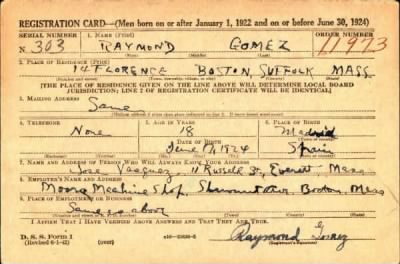 REGISTRATION CARD—(Men born on or after January 1, 1922 and on or before June 30, 1924)
SERIAL NUMBER 1. NAME (Print) ORDER NUMBER
N 303 RAYMOND GOMEZ 11973
(First) (Middle) (Last)
2. PLACE OF RESIDENCE (Print)
14 FLORENCE BOSTON, SUFFOLK MASS
[THE PLACE OF RESIDENCE GIVEN ON THE LINE ABOVE WILL DETERMINE LOCAL BOARD
JURISDICTION; LINE 2 OF REGISTRATION CERTIFICATE WILL BE IDENTICAL]
3. MAILING ADDRESS
Same
4. TELEPHONE 5. AGE IN YEARS 6. PLACE OF BIRTH
None 18 Madrid
DATE OF BIRTH
June 1924 Spain
7. NAME AND ADDRESS OF PERSON WHO WILL ALWAYS KNOW YOUR ADDRESS
Jose Vasquez, 11 Russell St, Everett, Mass
8. EMPLOYER'S NAME AND ADDRESS
Moore Machine Shop, Boston, Mass
9. PLACE OF EMPLOYMENT OR BUSINESS
Same as above
I AFFIRM THAT I HAVE VERIFIED ABOVE ANSWERS AND THAT THEY ARE TRUE.
D. S. S. Form 1
(Revised 6-1-42) (over)
Raymond Gomez
(Registrant's signature)